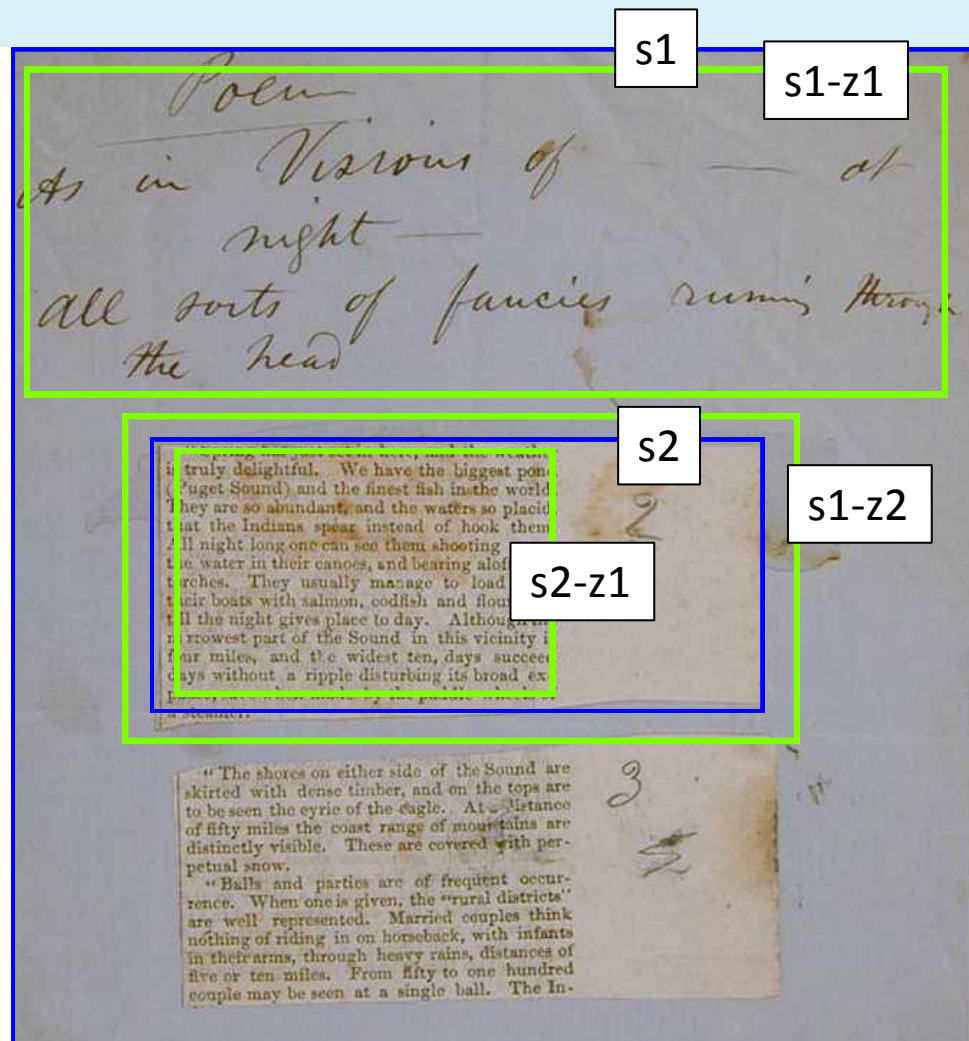 s1
s1-z1
Poem
As in Visions of — — at
night —
All sorts of fancies running through
the head
s2
s1-z2
s2-z1
is truly delightful. We have the biggest pond
(Puget Sound) and the finest fish in the world.
They are so abundant, and the waters so placid
that the Indians spear instead of hook them
All night long one can see them shooting
the water in their canoes, and bearing aloft
torches. They usually manage to load
their boats with salmon, codfish and
till the night gives place to day. Although
narrowest part of the Sound in this vicinity
four miles, and the widest ten, days succeed
days without a ripple disturbing its broad ex
a steamer.
2
"The shores on either side of the Sound are
skirted with dense timber, and on the tops are
to be seen the eyrie of the eagle. At a distance
of fifty miles the coast range of mountains are
distinctly visible. These are covered with per-
petual snow.
"Balls and parties are of frequent occur-
rence. When one is given, the "rural districts"
are well represented. Married couples think
nothing of riding in on horseback, with infants
in their arms, through heavy rains, distances of
five or ten miles. From fifty to one hundred
couple may be seen at a single ball. The In-
3